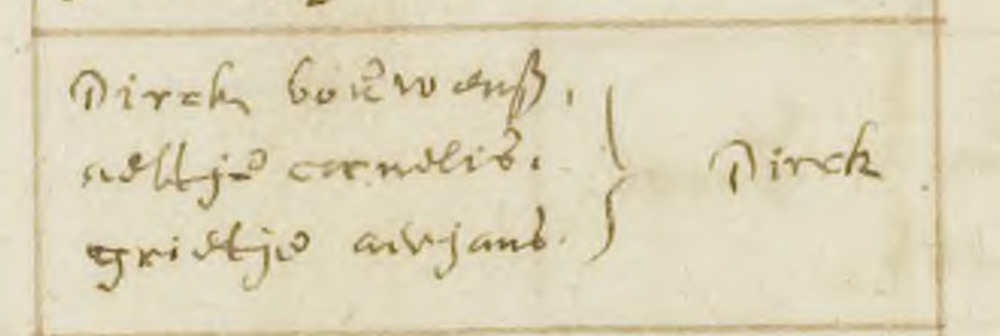 Dirck bouwensz,
aeltje cornelis.
grietje arijans.
Dirck